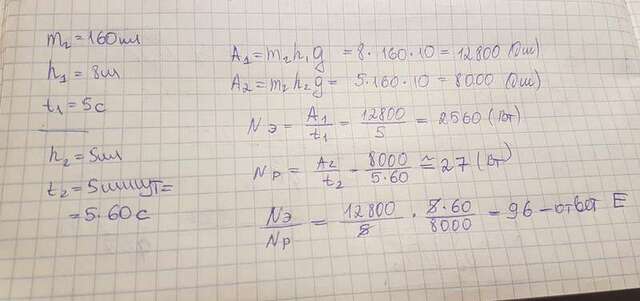 m₂=160 кг
h₁ = 8м
t₁=5с
h₂=5м
t₂=5минут=
=5·60с
A₁=m₂h₁g =8·160·10=12800 (Дж)
A₂=m₂h₂g= 5·160·10=8000 (Дж)
Nэ = A₁/t₁ = 12800/5 = 2560 (Вт)
Nр = A₂/t₂ = 8000/5·60 ≈ 27 (Вт)
Nэ/Nр = 12800/5 · 5·60/8000 = 96 – ответ E